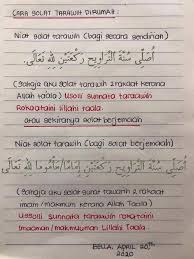 CARA SOLAT TARAWIH DIRUMAH :
Niat solat tarawih (bagi secara sendirian)
أُصَلِّى سُنَّةَ التَّرَاوِيحِ رَكْعَتَيْنِ لِلَّهِ تَعَالَى
(Sahaja aku solat tarawih 2 rakaat kerana
Allah taala) Usolli sunnata tarawih
Rakaataini lillahi taala
atau sekiranya solat berjemaah
Niat solat tarawih (bagi solat berjemaah)
أُصَلِّى سُنَّةَ التَّرَاوِيحِ رَكْعَتَيْنِ إِمَامًا/مَأْمُومًا لِلَّهِ تَعَالَى
(Sahaja aku solat sunat tarawih 2 rakaat
imam / makmum kerana Allah Taala)
Ussolli Sunnata tarawih rakataini
Imaman/makmuman Lillahi Taala.
BELLA, APRIL 20th
2020